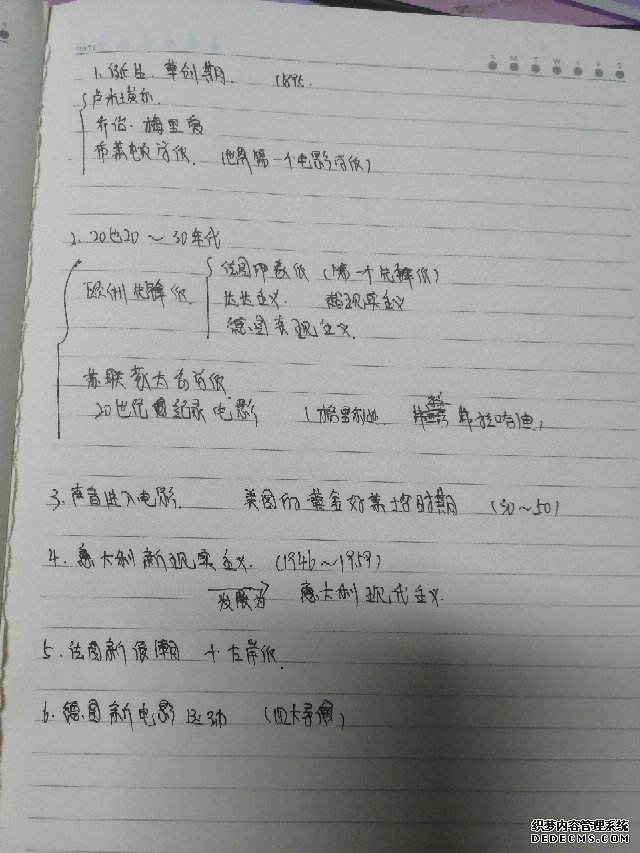 DATE
S M T W T F S
1. 诞生. 草创期. 1895.
卢米埃尔.
乔治·梅里爱
布莱顿学派. (世界第一个电影学派)
2. 20世20～30年代
欧洲先锋派
法国印象派 (第一个先锋派)
达达主义. 超现实主义
德国表现主义.
苏联蒙太奇学派.
20世纪纪录电影 (格里利地 弗拉哈迪)
3. 声音进入电影. 美国的黄金好莱坞时期 (30～50)
4. 意大利新现实主义. (1946～1959)
发展为 意大利现代主义.
5. 法国新浪潮 + 左岸派.
6. 德国新电影运动 (四大导演)
织梦内容管理系统
DEDECMS.COM